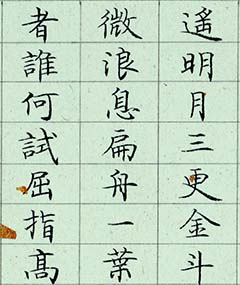 遙明月三更金斗
微浪息扁舟一葉
者誰何試屈指髙